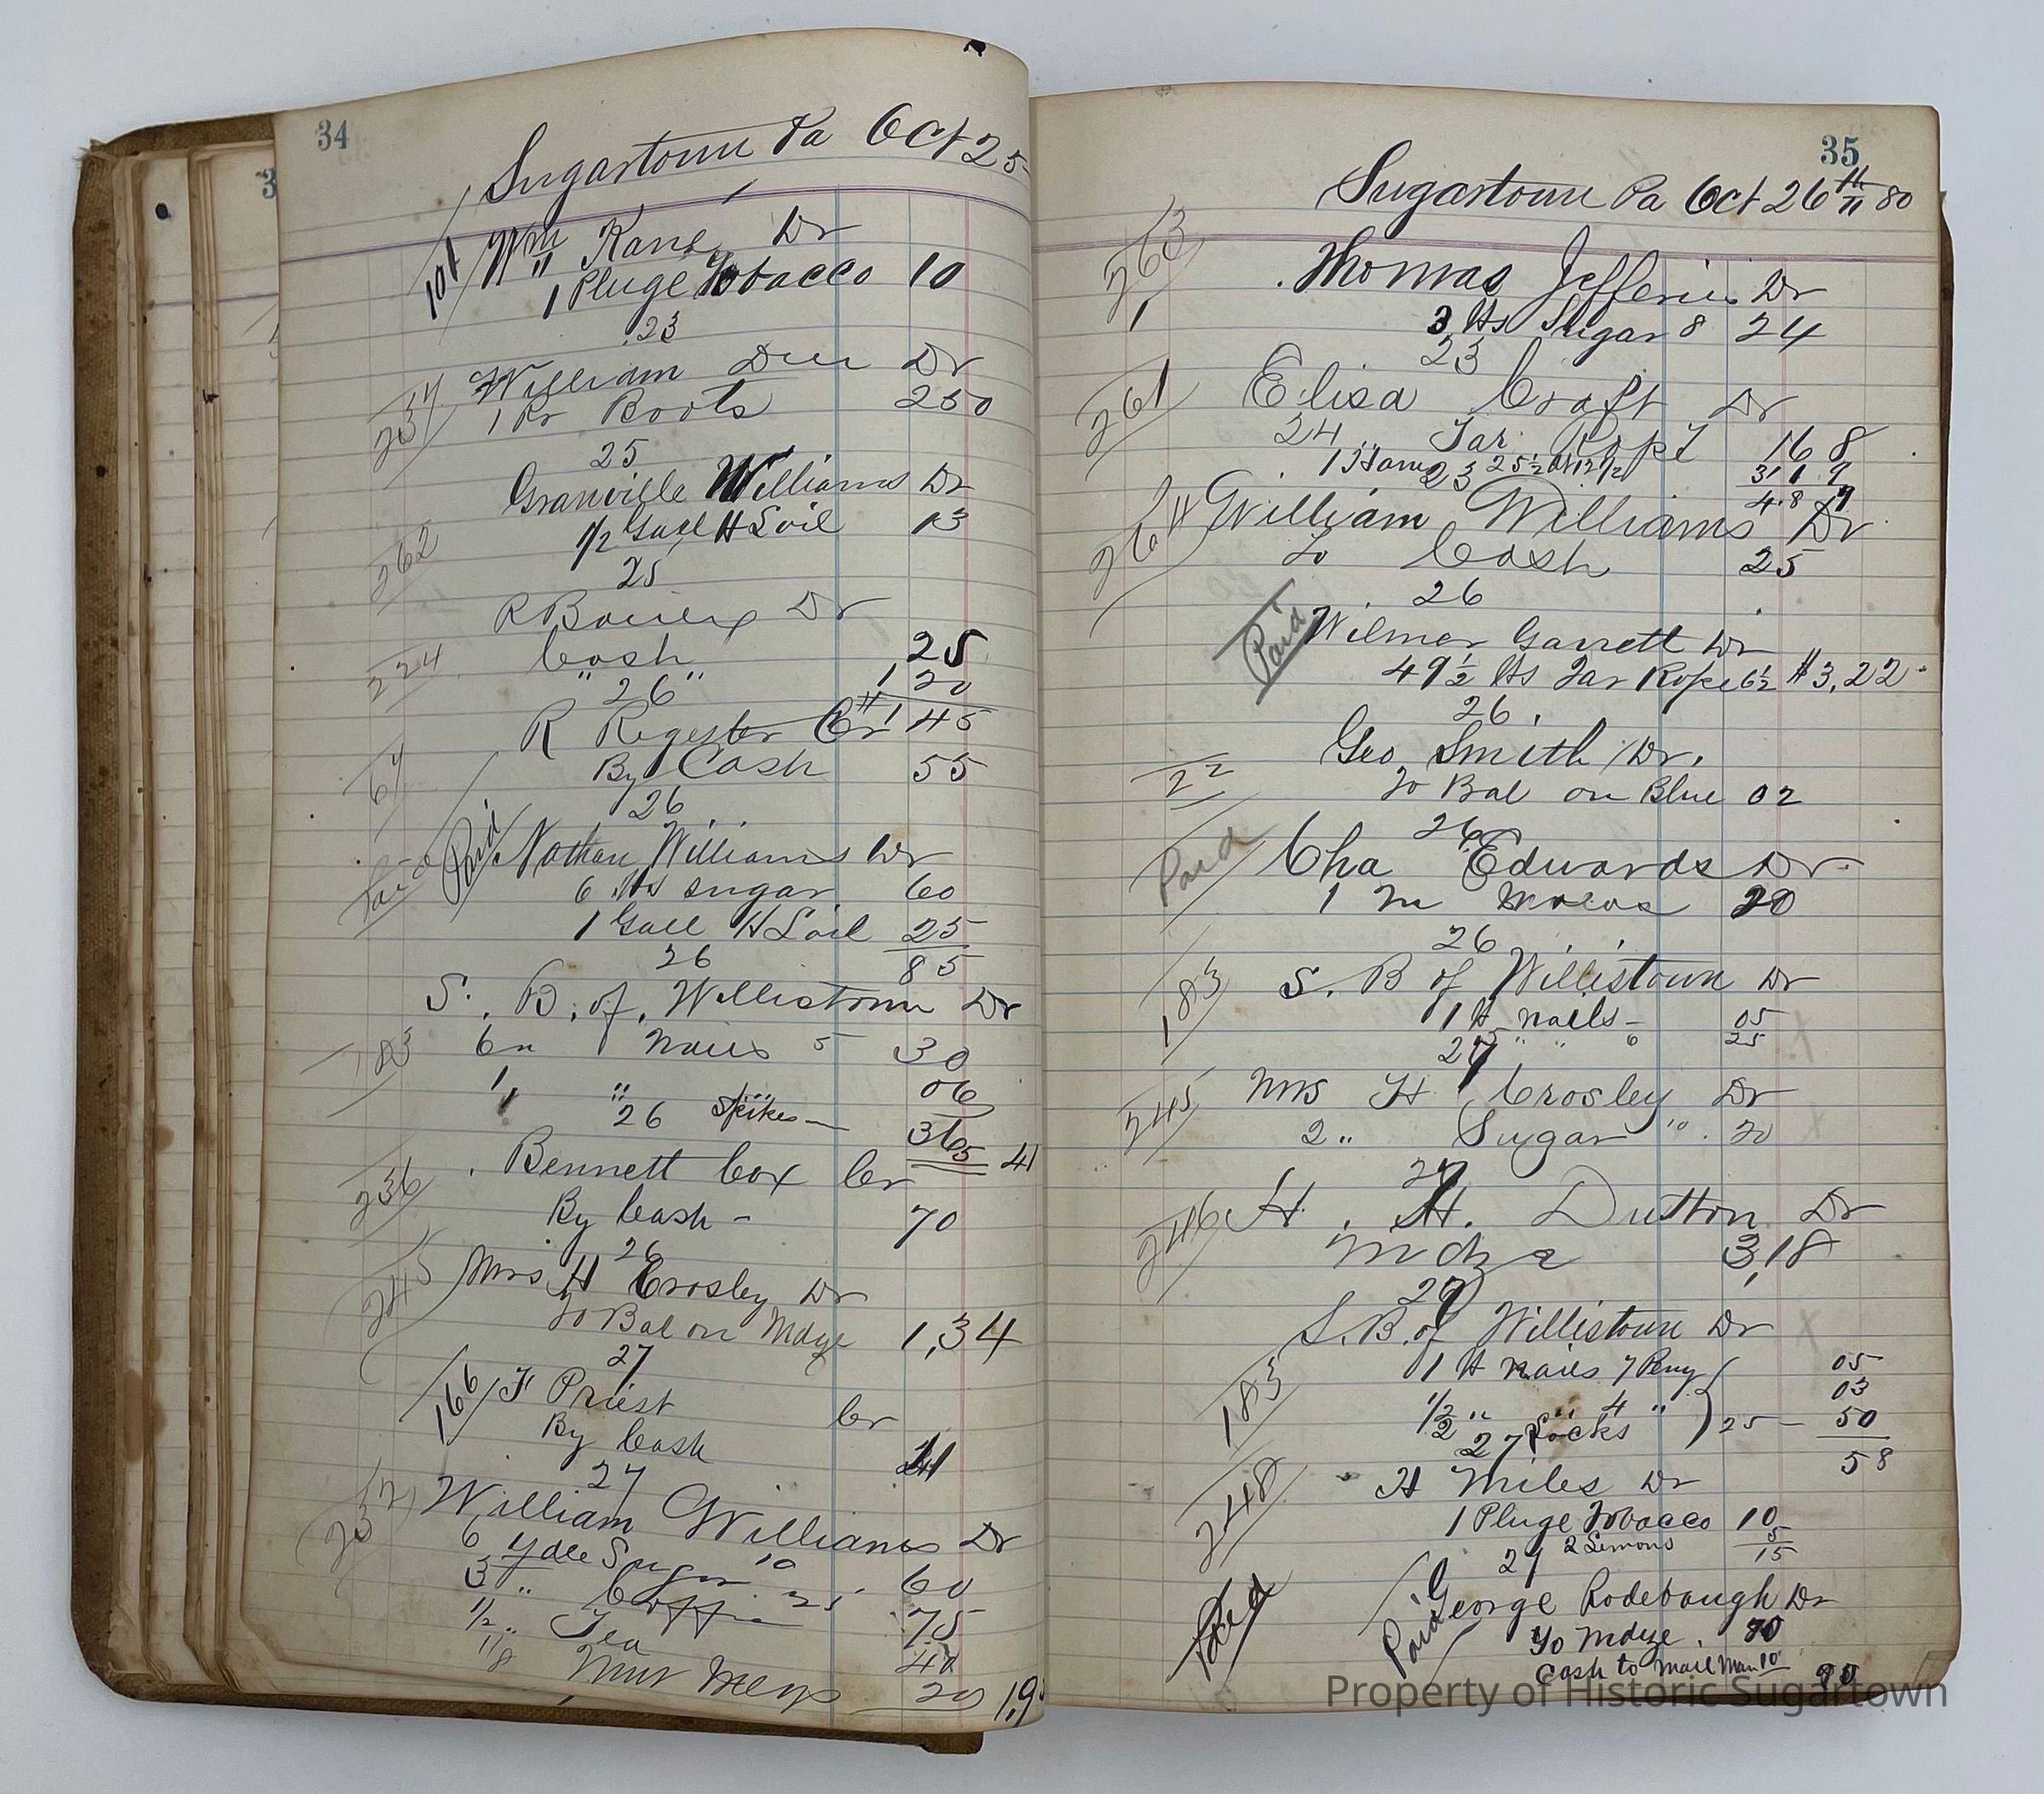 34
Sugartown Pa Oct 25
101 Wm Kane Dr
1 Pluge Tobacco 10
23
William Duer Dr
237 1 Pr Boots 250
25
Granville Williams Dr
262 1/2 Gall H L oil 13
25
R Dr
224 Cash 25
" 26 " 1,20
R Register Cr # 1 45
67 By Cash 55
26
Paid Paid Nathan Williams Dr
6 lbs sugar 60
1 Gall H L oil 25
26 85
S. B. of Willistown Dr
183 6 " Nails 5 30
1 " " 06
26 Spikes 36
5 41
236 Bennett Cox Cr
By Cash - 70
26
245 Mrs H Crosley Dr
To Bal on Mdze 1,34
27
166 F Priest Cr
By Cash
27
William Williams Dr
6 Sugar 10 60
3 " Coffee 25 75
1/2 " Tea 40
1/8 Nut Megs 20 1,9
35
Sugartown Pa Oct 26th 80
263 Thomas Jefferis Dr
1 3 lbs Sugar 8 24
23
261 Elisa Craft Dr
24 " Tar Rope 7 168
1 Ham 25 1/2 at 12 1/2 319
23 4.87
264 William Williams Dr
To Cash 25
26
Paid Wilmer Garrett Dr
49 1/2 lbs Tar Rope 6 1/2 $3,22
26
Geo Smith Dr.
22 To Bal on Blue 02
26
Paid Cha Edwards Dr
1 20
26
183 S. B of Willistown Dr
1 lb nails - 05
" " 6 25
27
245 Mrs H Crosley Dr
2 " Sugar " 10 . 20
27
246 H. H. Dutton Dr
Mdze 3,18
27
S. B. of Willistown Dr
183 1 lb nails 7 Peny 05
1/2 " " 4 " 03
2 Locks 25 - 50
27 58
248 H Miles Dr
1 Pluge Tobacco 10
2 Lemons 5
27 15
Paid Paid George Rodebaugh Dr
To Mdze. 80
Cash to Mail Man 10 90
Property of Historic Sugartown